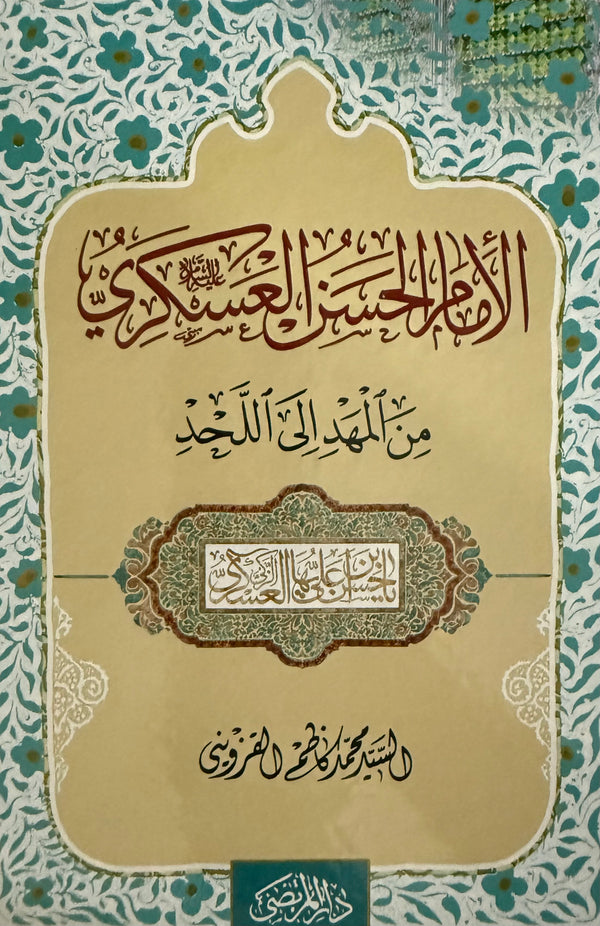 الإمام الحسن العسكري عليه السلام
مِنَ ٱلْمَهْدِ إِلَى ٱللَّحْدِ
يا حسن بن علي أيها الزكي العسكري
السيد محمد كاظم القزويني
دار المرتضى